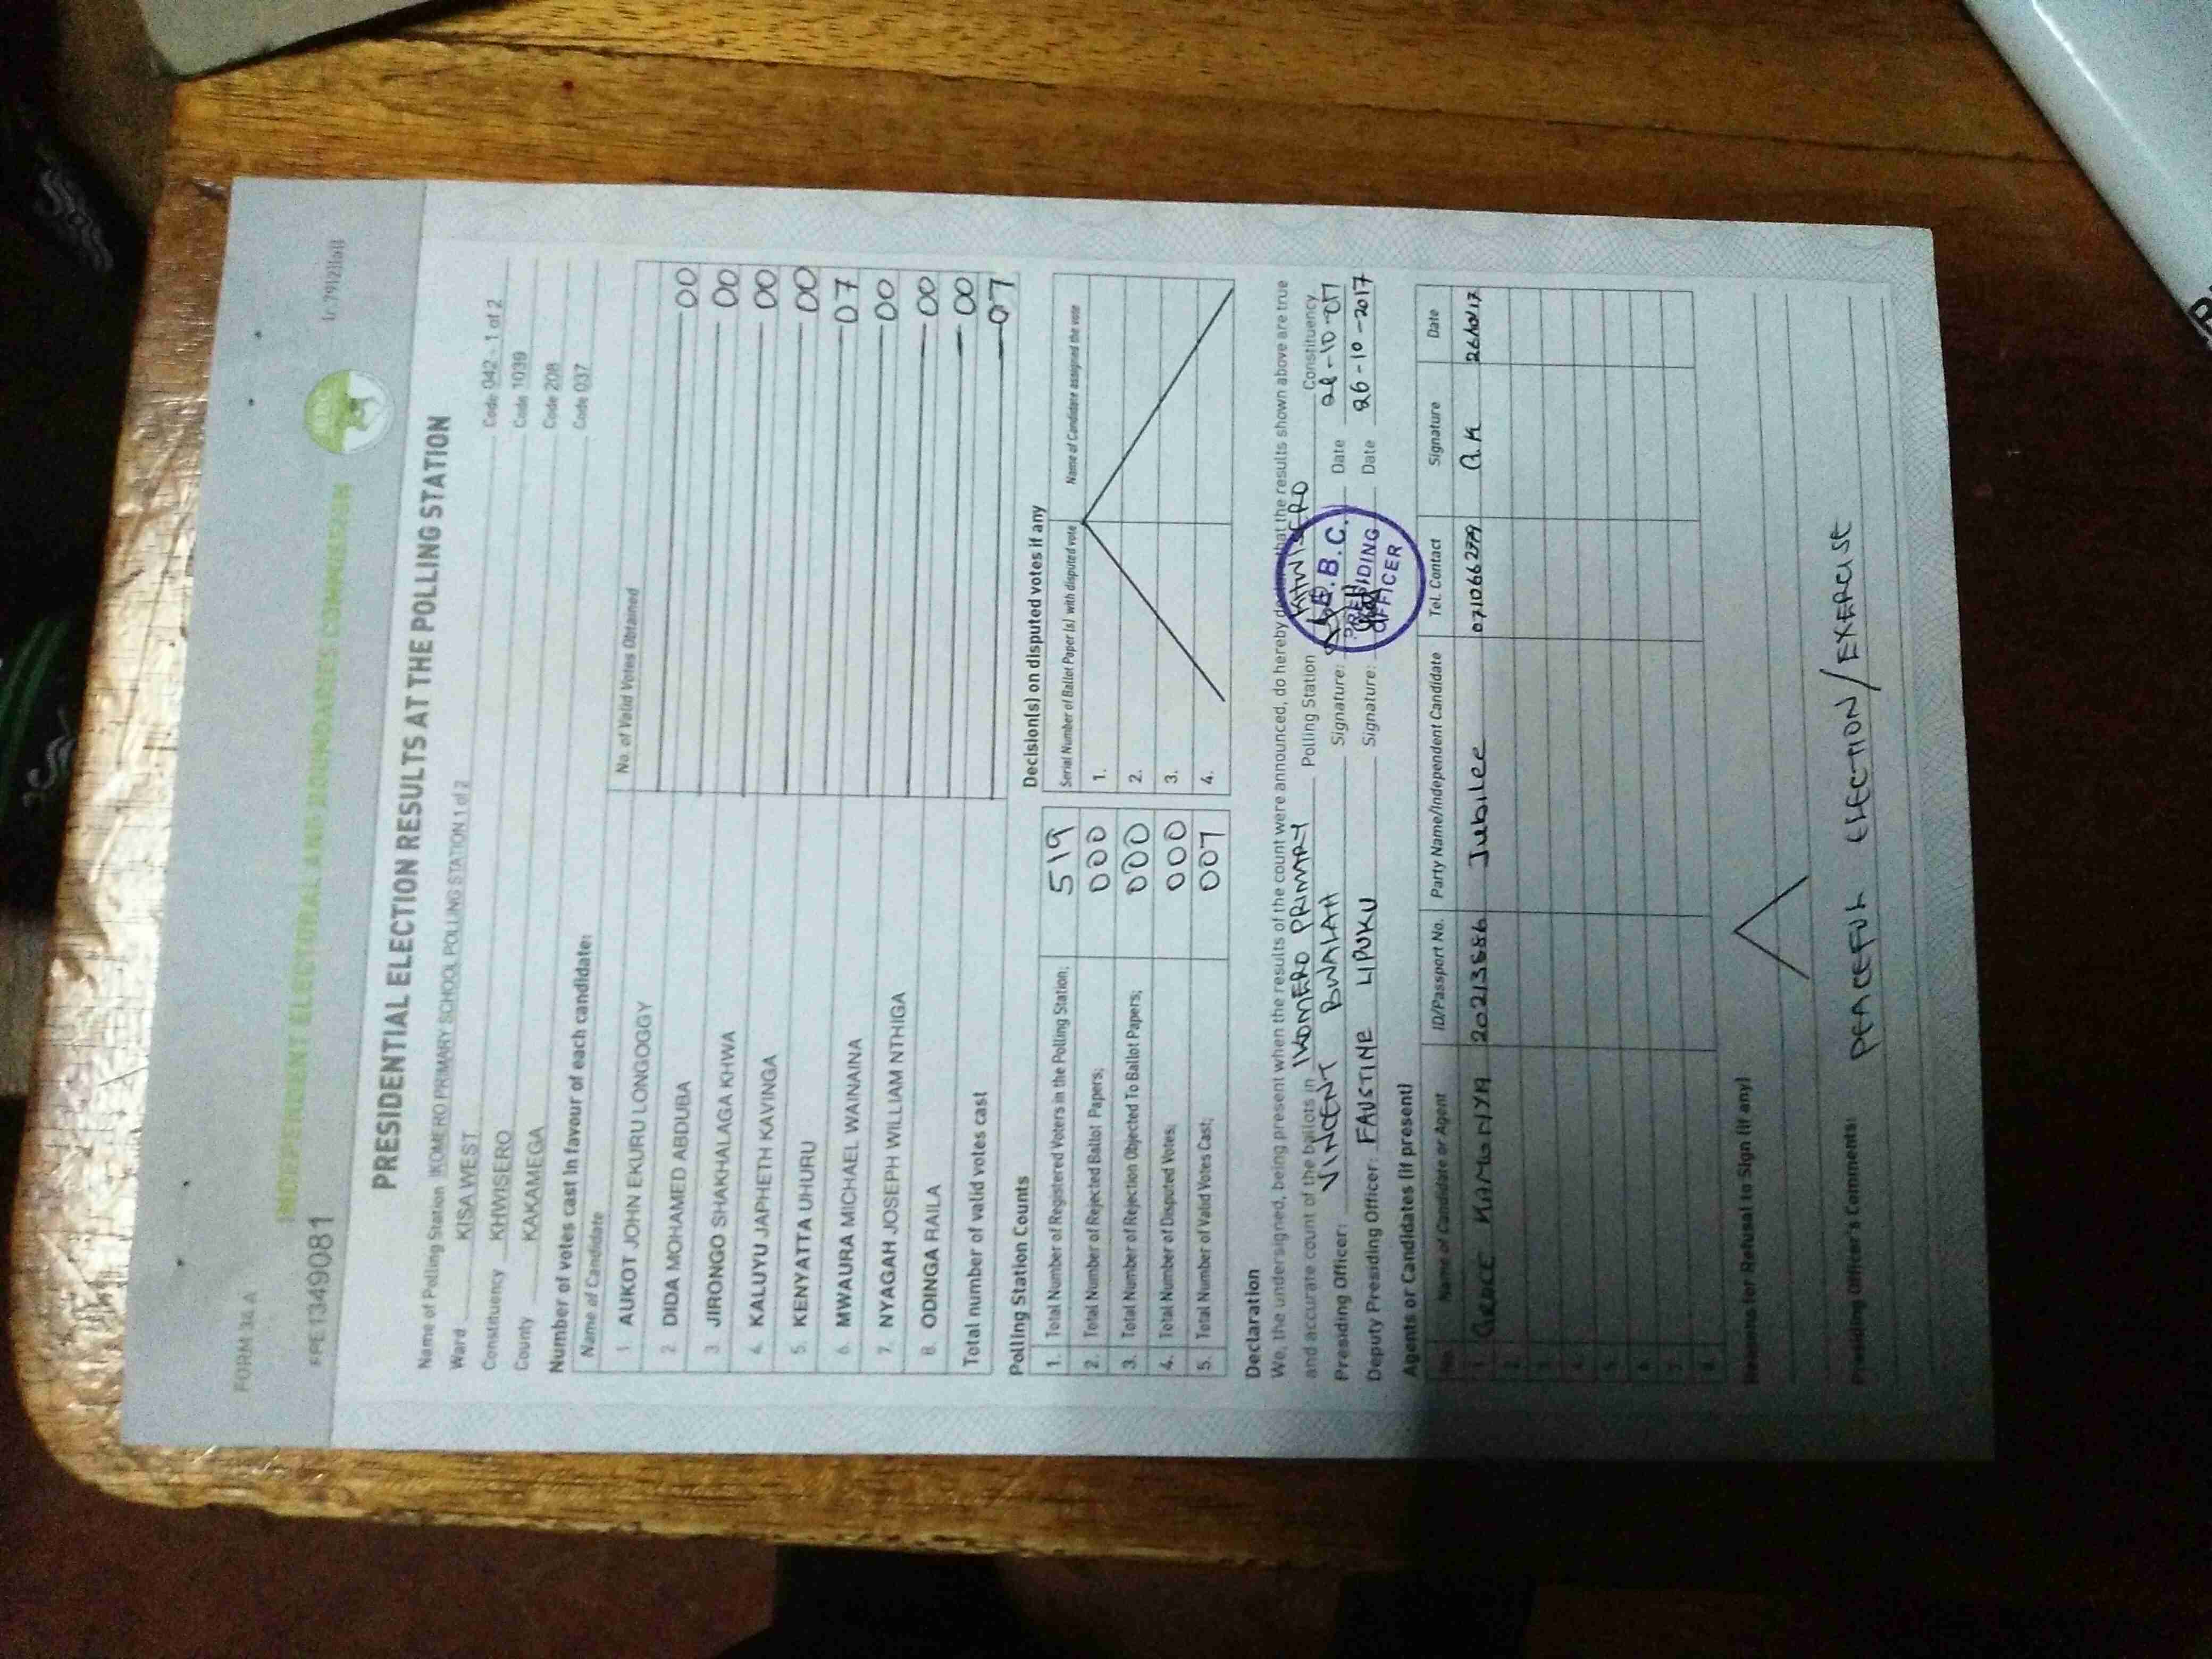 FORM 34 A
PPE 1349081
INDEPENDENT ELECTORAL AND BOUNDARIES COMMISSION
IEBC
PRESIDENTIAL ELECTION RESULTS AT THE POLLING STATION
Name of Polling Station IKOMERO PRIMARY SCHOOL POLLING STATION 1 of 2 Code 042 - 1 of 2
Ward KISA WEST Code 1039
Constituency KHWISERO Code 208
County KAKAMEGA Code 037
Number of votes cast in favour of each candidate:
Name of Candidate No. of Valid Votes Obtained
1. AUKOT JOHN EKURU LONGOGGY 00
2. DIDA MOHAMED ABDUBA 00
3. JIRONGO SHAKHALAGA KHWA 00
4. KALUYU JAPHETH KAVINGA 00
5. KENYATTA UHURU 07
6. MWAURA MICHAEL WAINAINA 00
7. NYAGAH JOSEPH WILLIAM NTHIGA 00
8. ODINGA RAILA 00
Total number of valid votes cast 07
Polling Station Counts
1. Total Number of Registered Voters in the Polling Station; 519
2. Total Number of Rejected Ballot Papers; 000
3. Total Number of Rejection Objected To Ballot Papers; 000
4. Total Number of Disputed Votes; 000
5. Total Number of Valid Votes Cast; 007
Decision(s) on disputed votes if any
Serial Number of Ballot Paper (s) with disputed vote Name of Candidate assigned the vote
1.
2.
3.
4.
Declaration
We, the undersigned, being present when the results of the count were announced, do hereby declare that the results shown above are true
and accurate count of the ballots in IKOMERO PRIMARY Polling Station KHWISERO Constituency.
Presiding Officer: VINCENT BWALAH Signature: Date
Deputy Presiding Officer: FAUSTINE LIPUKU Signature: Date 26-10-2017
I.E.B.C.
PRESIDING
OFFICER
Agents or Candidates (if present)
No. Name of Candidate or Agent ID/Passport No. Party Name/Independent Candidate Tel. Contact Signature Date
1. GRACE KAMONYA Jubilee 26/10/17
2.
3.
4.
5.
6.
7.
8.
Reasons for Refusal to Sign (if any)
Presiding Officer's Comments: PEACEFUL ELECTION/EXERCISE